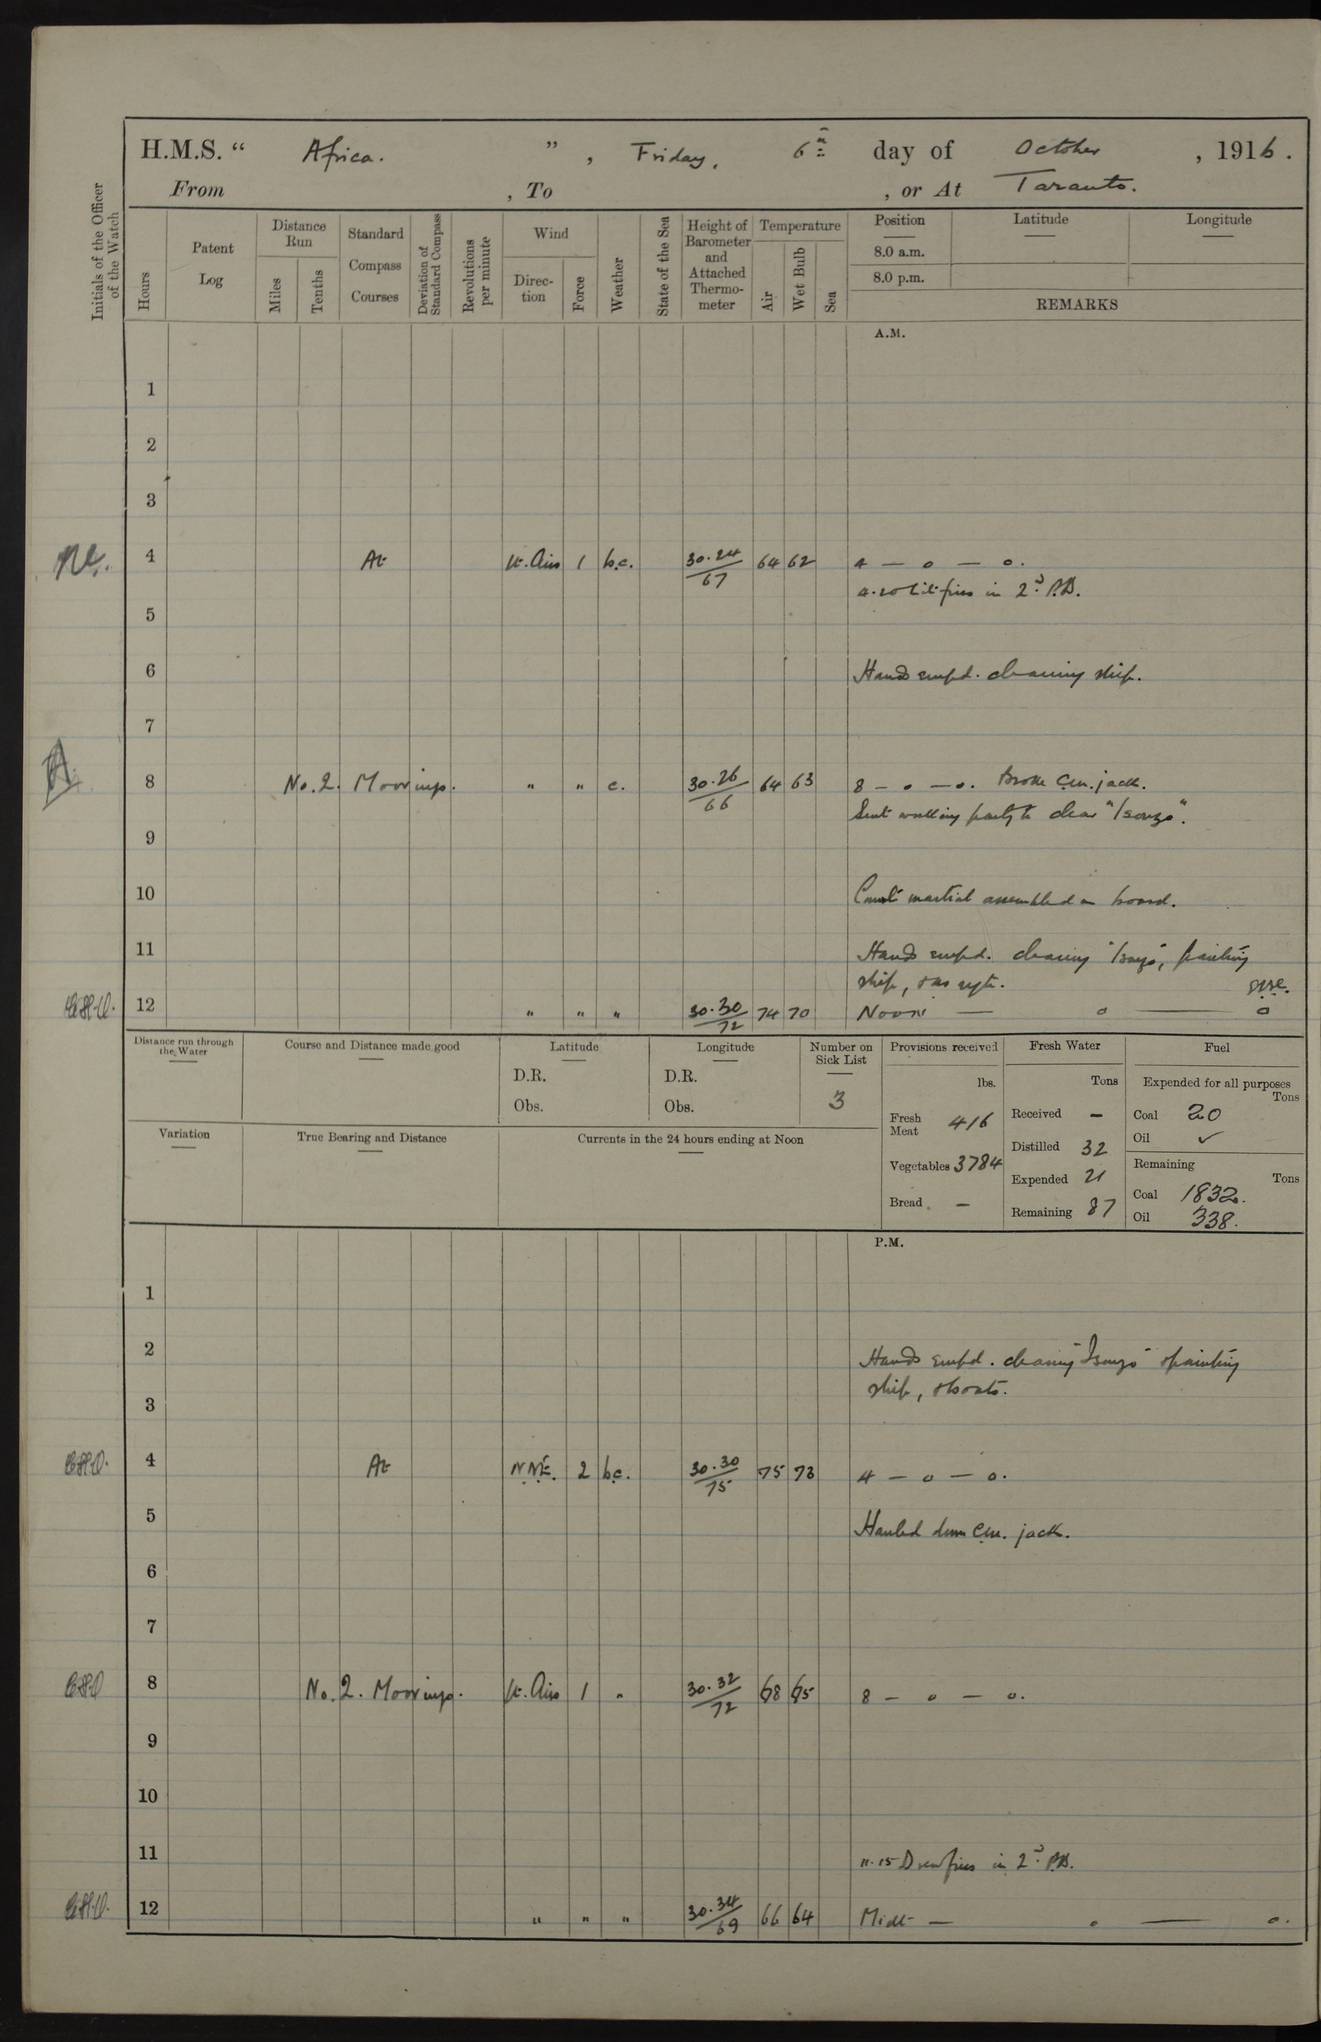 H.M.S. “ Africa. ” , Friday, 6th day of October , 1916.
From , To , or At Taranto.
Initials of the Officer of the Watch
Hours
Patent Log
Distance Run
Miles
Tenths
Standard Compass Courses
Deviation of Standard Compass
Revolutions per minute
Wind
Direc-tion
Force
Weather
State of the Sea
Height of Barometer and Attached Thermo-meter
Temperature
Air
Wet Bulb
Sea
Position Latitude Longitude
8.0 a.m.
8.0 p.m.
REMARKS
A.M.
1
2
3
4 At lt. Airs 1 b.c. 30.24/67 64 62 4 — o — o.
4.20 Lit fires in 2nd P.B.
5
6 Hands empd. cleaning ship.
7
8 No. 2. Moorings. " " c. 30.26/66 64 63 8 — o — o. Broke Cen. jack.
Sent working party to clear "Isonzo".
9
10 Court martial assembled on board.
11 Hands empd. cleaning "Isonzo", painting
ship, & as reqte.
12 " " " 30.30/72 74 70 Noon — o — o
Distance run through the Water
Course and Distance made good
Latitude
D.R.
Obs.
Longitude
D.R.
Obs.
Number on Sick List
3
Provisions received
lbs.
Fresh Meat 416
Vegetables 3784
Bread —
Fresh Water
Tons
Received —
Distilled 32
Expended 21
Remaining 87
Fuel
Expended for all purposes
Tons
Coal 20
Oil ✓
Remaining
Tons
Coal 1832.
Oil 338.
Variation
True Bearing and Distance
Currents in the 24 hours ending at Noon
P.M.
1
2 Hands empd. cleaning "Isonzo" & painting
ship, & boats.
3
4 At N.N.E. 2 b.c. 30.30/75 75 73 4 — o — o.
5 Hauled down Cen. jack.
6
7
8 No. 2. Moorings. lt. Airs 1 " 30.32/72 68 65 8 — o — o.
9
10
11 11.15 Drew fires in 2nd P.B.
12 " " " 30.34/69 66 64 Midt — o — o.